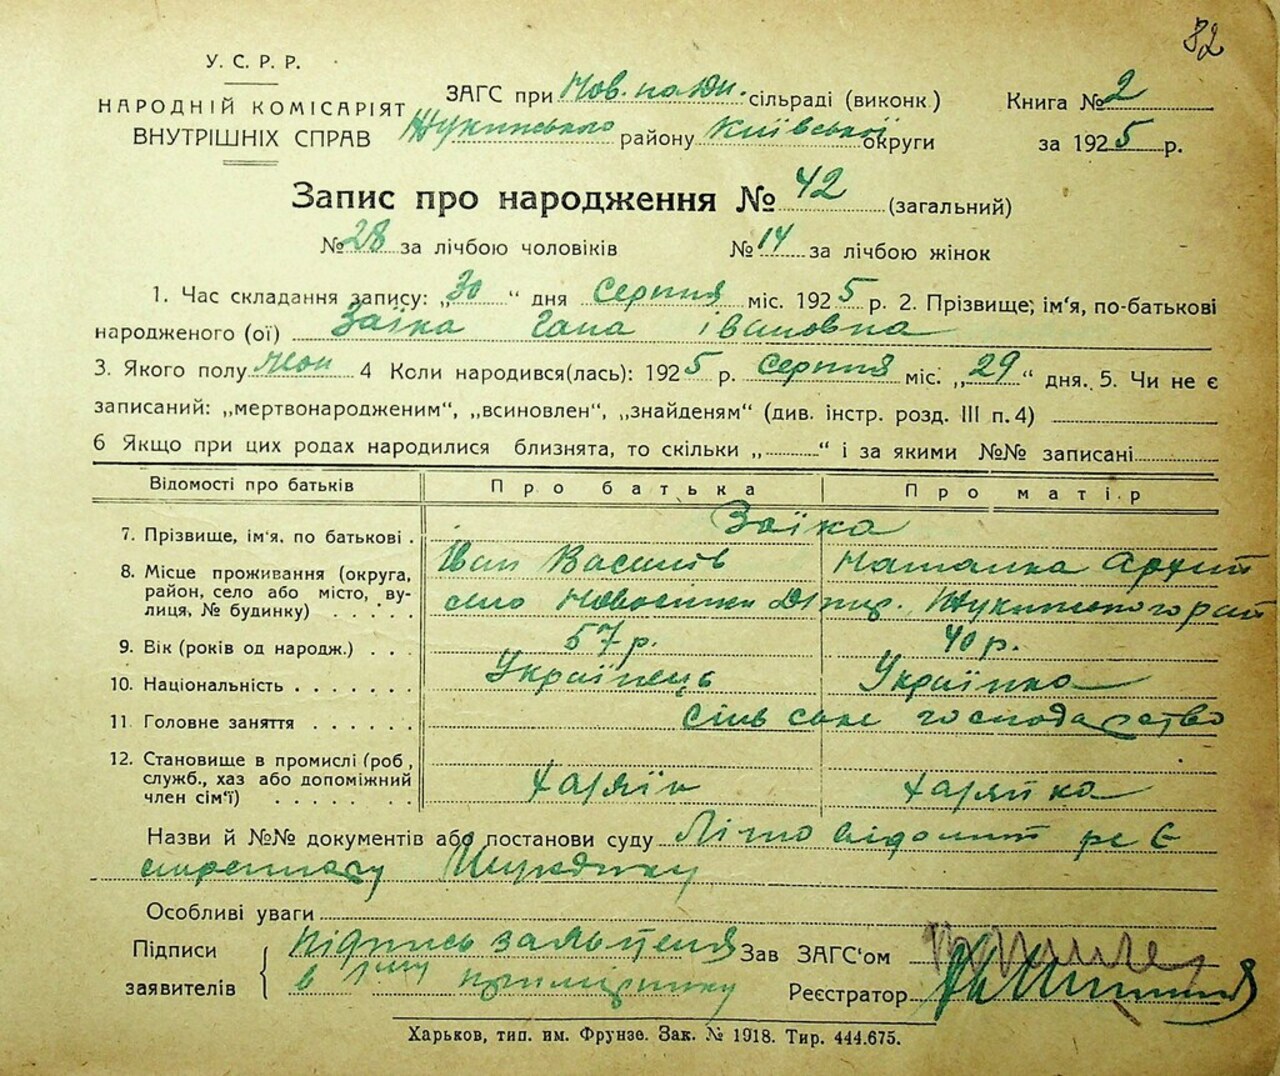 82
У. С. Р. Р.
НАРОДНІЙ КОМІСАРІЯТ
ВНУТРІШНІХ СПРАВ
ЗАГС при сільраді (виконк.)
Жукинського району Київської округи
Книга № 2
за 1925 р.
Запис про народження № 42 (загальний)
№ 28 за лічбою чоловіків № 14 за лічбою жінок
1. Час складання запису: „30“ дня Серпня міс. 1925 р. 2. Прізвище, ім'я, по-батькові
народженого (ої) Заїка Гана Івановна
3. Якого полу жон 4 Коли народився(лась): 1925 р. Серпня міс. „29“ дня. 5. Чи не є
записаний: „мертвонародженим“, „всиновлен“, „знайденям“ (див. інстр. розд. III п. 4)
6 Якщо при цих родах народилися близнята, то скільки „ “ і за якими №№ записані
Відомості про батьків Про батька Про матір
7. Прізвище, ім'я, по батькові . Заїка
Іван Василів Наталка Архип
8. Місце проживання (округа, район, село або місто, вулиця, № будинку) село Новосілки Жукинського рай
9. Вік (років од народж.) . . . 57 р. 40 р.
10. Національність . . . . . . . Українець Українка
11. Головне заняття . . . . . . Сільське господарство
12. Становище в промислі (роб, служб., хаз або допоміжний член сім'ї) . . . . . . Хазяїн Хазяйка
Назви й №№ документів або постанови суду
Особливі уваги
Підписи заявителів Підпись заявителя
в 1му примірнику
Зав ЗАГС'ом
Реєстратор
Харьков, тип. им. Фрунзе. Зак. № 1918. Тир. 444.675.